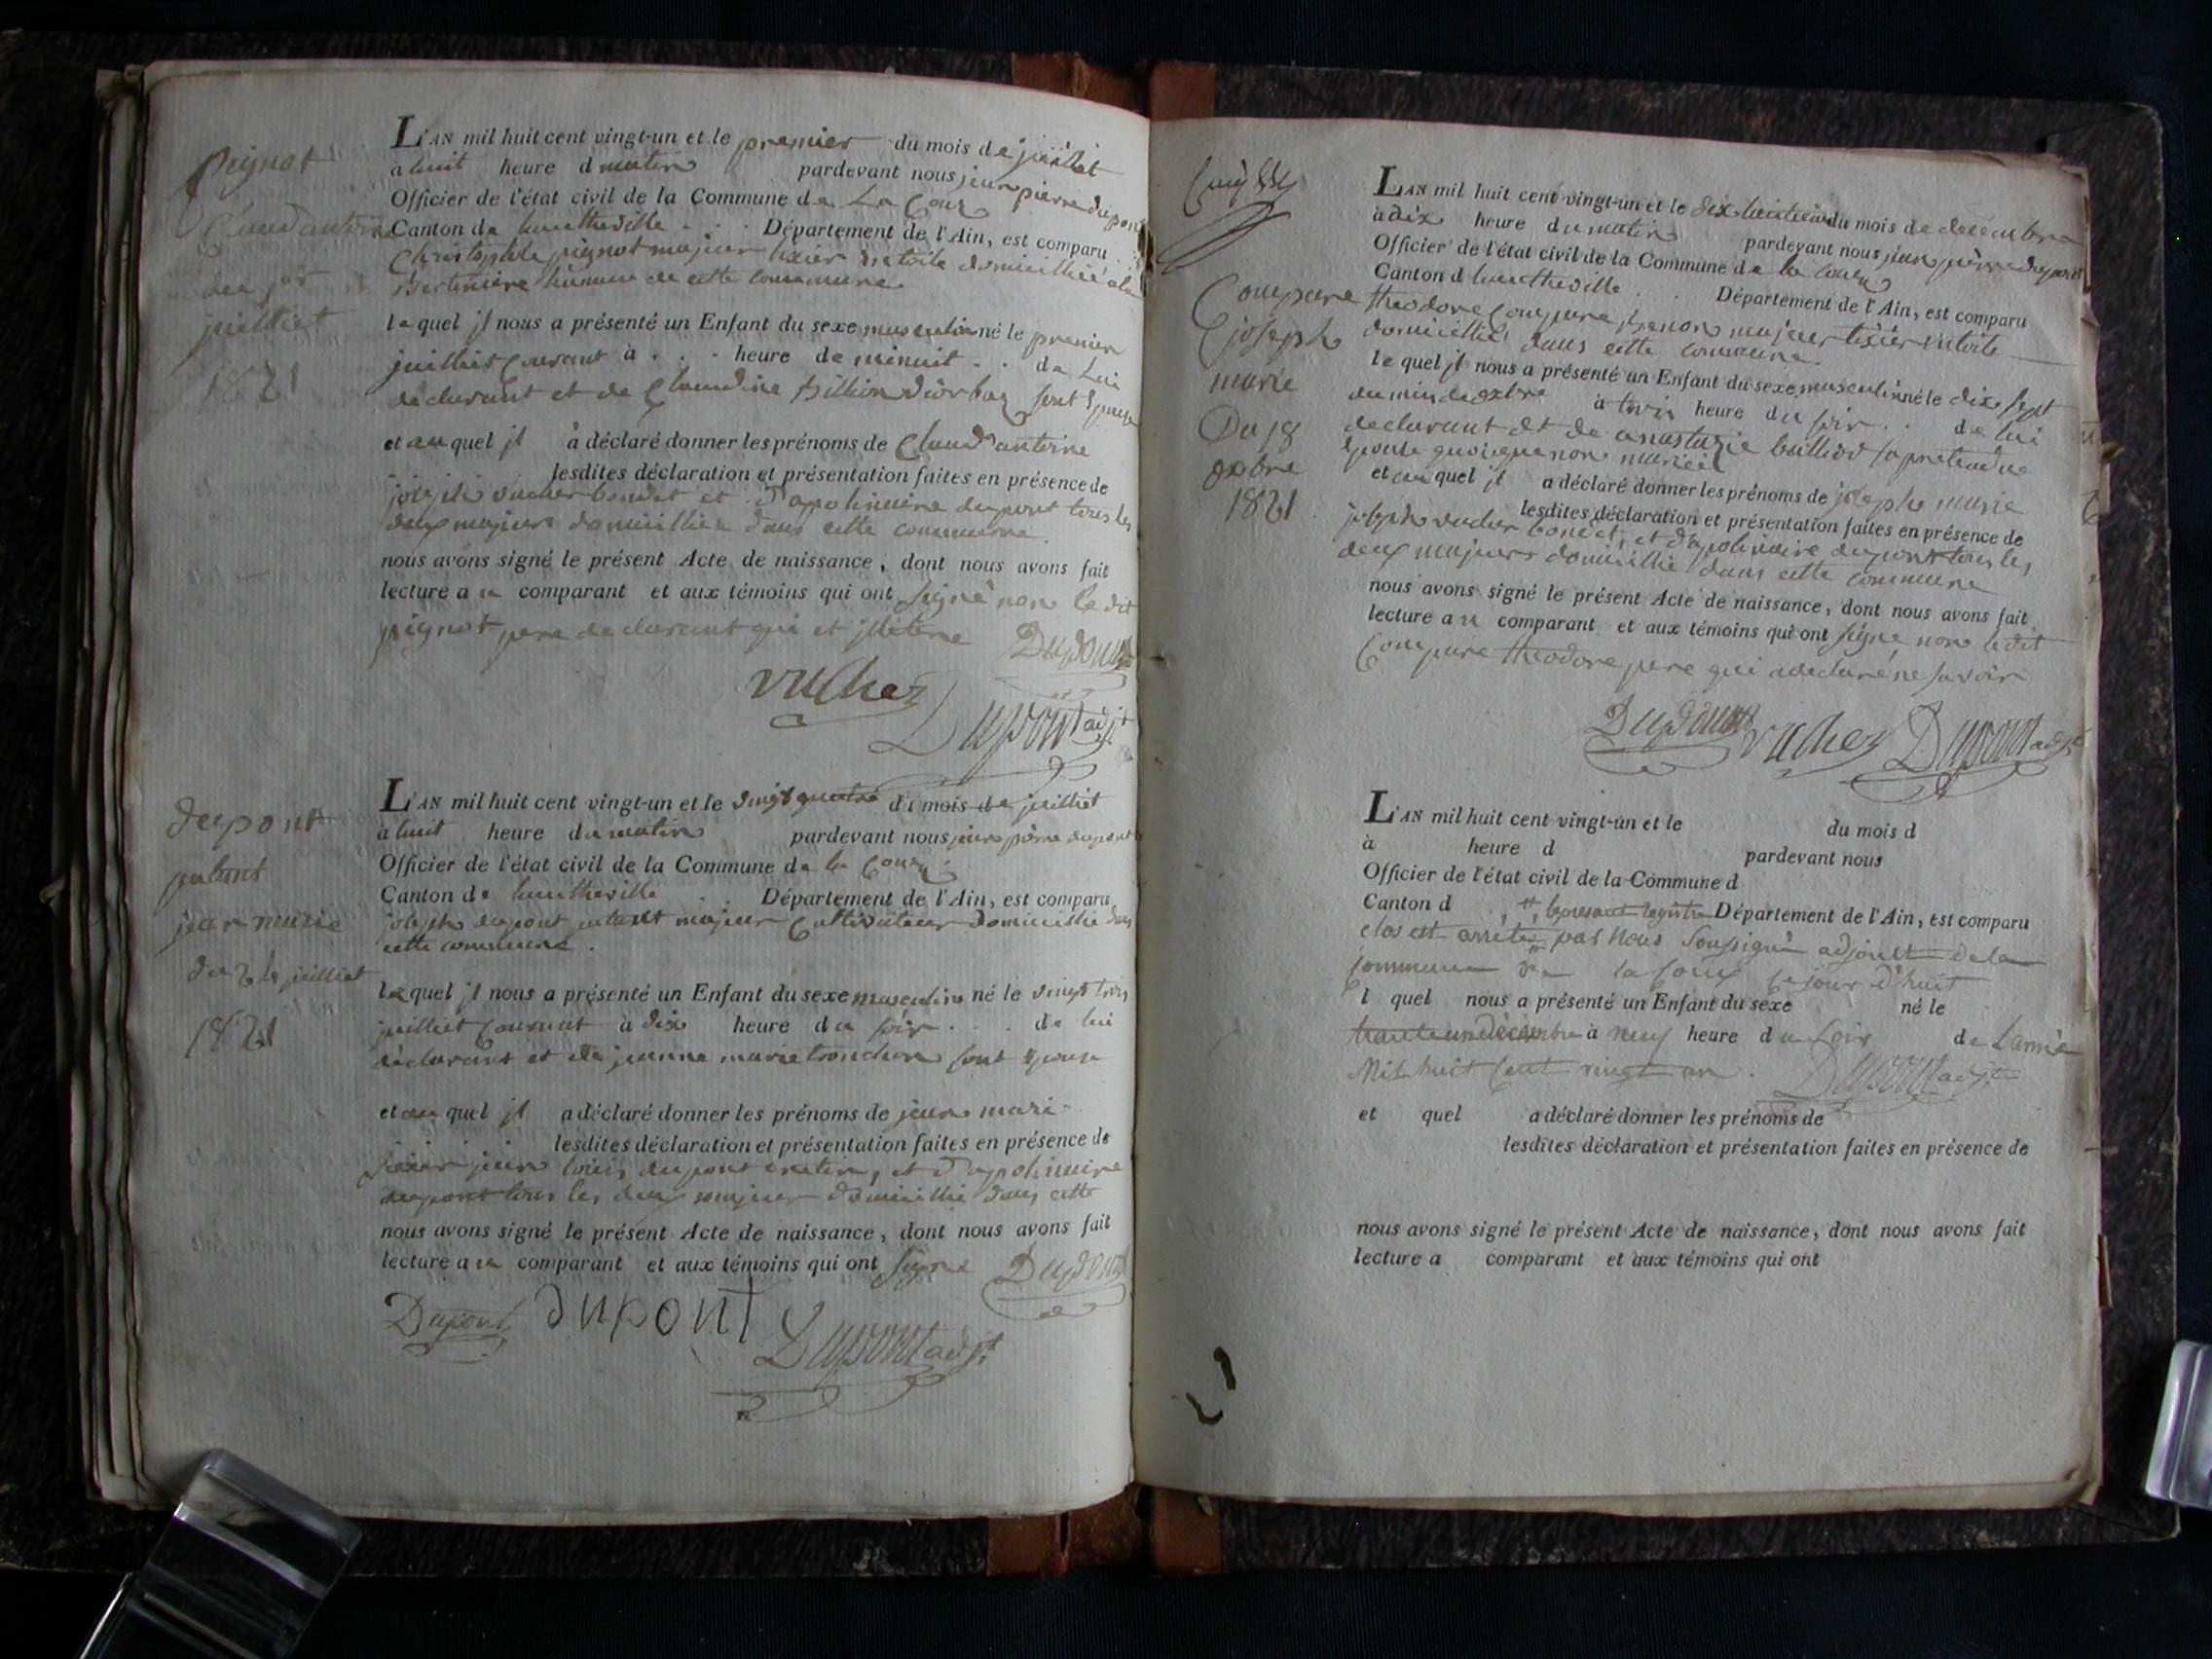 Peignot
Claud antoine
du 1er
juilliet
1821
L'AN mil huit cent vingt-un et le premier du mois de juillet
à huit heure d matin pardevant nous jean pierre dupont
Officier de l'état civil de la Commune de La Coux
Canton de hauttheville . . . Département de l'Ain, est comparu
Christophle peignot majeur tixier en toile domicillié a la
hameau de cette commune
le quel jl nous a présenté un Enfant du sexe masculin né le premier
juilliet courant à . . . heure de minuit . . de Lui
déclarant et de Claudine Billion sont Epouse
et au quel jl à déclaré donner les prénoms de Claud'antoine
lesdites déclaration et présentation faites en présence de
joseph vucher bondet et d'apolinaire dupont tous les
deux majeurs domicilliez dans cette commune.
nous avons signé le présent Acte de naissance, dont nous avons fait
lecture a u comparant et aux témoins qui ont signé non le dit
peignot pere declarant qui et jlitéré Dupont
vucher
Dupont adjt
dupont
jean marie
du 24 juilliet
1821
L'AN mil huit cent vingt-un et le vingt quatre du mois de juilliet
à huit heure du matin pardevant nous jean pierre dupont
Officier de l'état civil de la Commune de la Coux
Canton de hauttheville . . Département de l'Ain, est comparu
joseph dupont majeur Cultivateur domicillié dans
cette commune.
le quel jl nous a présenté un Enfant du sexe masculin né le vingt trois
juilliet courant à dix heure du soir . . . de lui
déclarant et de jeanne marie tronchon sont Epouse
et au quel jl a déclaré donner les prénoms de jean marie
lesdites déclaration et présentation faites en présence de
jean louis dupont et d'apolinaire
dupont tous les deux majeur domicillié dans cette
nous avons signé le présent Acte de naissance, dont nous avons fait
lecture a u comparant et aux témoins qui ont signé Dupont
Dupont dupont
Dupont adjt
Coupure
joseph
marie
Du 18
Dxbre
1821
L'AN mil huit cent vingt-un et le dix huitieme du mois de decembre
à dix heure du matin pardevant nous jean pierre dupont
Officier de l'état civil de la Commune de la Coux
Canton d hauttheville . . Département de l'Ain, est comparu
theodore Coupure majeur tixier en toile
domicillié dans cette commune
le quel jl nous a présenté un Enfant du sexe masculin né le dix sept
du mois de dxbre à trois heure du soir . . de lui
declarant et de anastazie baillod sa pretendue
Epouse quoique non mariéé
et au quel jl a déclaré donner les prénoms de joseph marie
lesdites déclaration et présentation faites en présence de
joseph vucher bondet, et d'apolinaire dupont tous les
deux majeurs domicillié dans cette commune
nous avons signé le présent Acte de naissance, dont nous avons fait
lecture a u comparant et aux témoins qui ont signé non le dit
Coupure theodore pere qui a declaré ne savoir
Dupont vucher Dupont adjt
L'AN mil huit cent vingt-un et le du mois d
à heure d pardevant nous
Officier de l'état civil de la Commune d
Canton d le present registre Département de l'Ain, est comparu
clos est arreté par Nous Soussigné adjoint de la
commune de la Coux ce jour d'huit
l quel nous a présenté un Enfant du sexe né le
trante un décembre à neuf heure du Soir de L'année
Mil huit Cent vingt un . Dupont adjt
et quel a déclaré donner les prénoms de
lesdites déclaration et présentation faites en présence de
nous avons signé le présent Acte de naissance, dont nous avons fait
lecture a comparant et aux témoins qui ont